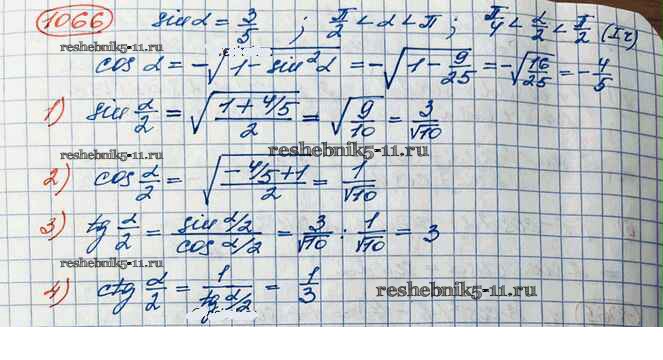 1066 sin α = 3/5 ; π/2 < α < π ; π/4 < α/2 < π/2 (I ч)
reshebnik5-11.ru
cos α = -√(1 - sin²α) = -√(1 - 9/25) = -√(16/25) = -4/5
1) sin α/2 = √((1 + 4/5)/2) = √(9/10) = 3/√10
reshebnik5-11.ru
reshebnik5-11.ru
2) cos α/2 = √((-4/5 + 1)/2) = 1/√10
reshebnik5-11.ru
3) tg α/2 = (sin α/2)/(cos α/2) = 3/√10 : 1/√10 = 3
reshebnik5-11.ru
4) ctg α/2 = 1/(tg α/2) = 1/3
reshebnik5-11.ru